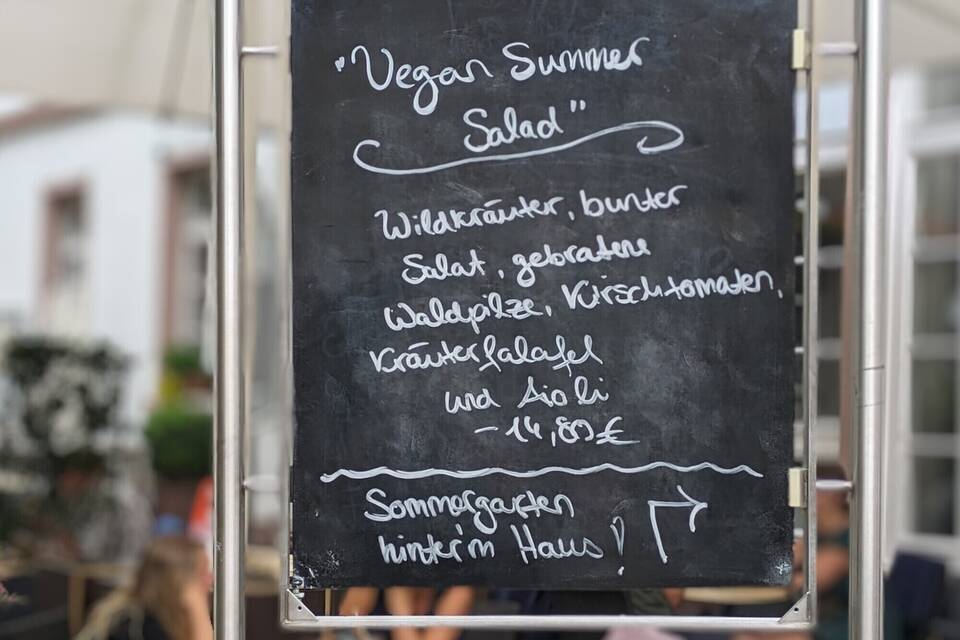 "Vegan Summer
Salad"
Wildkräuter, bunter
Salat, gebratene
Waldpilze, Kirschtomaten,
Kräuterfalafel
und Aioli
- 14,80€
Sommergarten
hinter'm Haus!